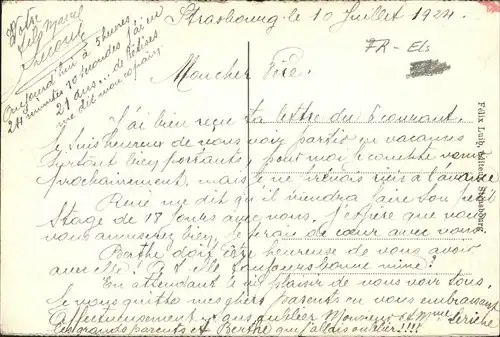 Strasbourg le 10 Juillet 1924
FR-Els
Votre
fils
Aujourd'hui à 5 heures
24 minutes 70 secondes j'ai eu
21 ans... de bêtises
me dit mon copain
Mon cher Père.
J'ai bien reçu ta lettre du 6 courant.
Je suis heureux de vous voir partir en vacances
surtout bien portants, pour moi je compte venir
prochainement, mais je ne à l'avance
René me dit qu'il viendra faire son petit
stage de 18 jours avec nous. J'espère que vous
vous amuserez bien, je serais de cœur avec vous.
Berthe doit être heureuse de vous avoir
avec elle! A t elle toujours bonne mine?
En attendant le plaisir de vous voir tous,
je vous quitte mes chers parents en vous embrassant
affectueusement sans oublier Monsieur et Mme Leriche
les grands parents et Berthe que j'allais oublier!!!!
Félix Luib, Editeur, Strasbourg